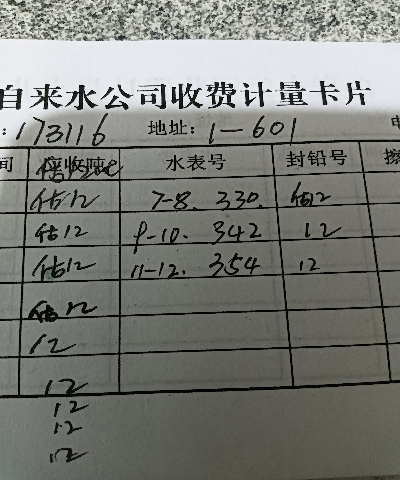 自来水公司收费计量卡片
:173116 地址:1-601 电
间 水表号 封铅号 擦
估12 7-8. 330. 估12
估12 9-10. 342 12
估12 11-12. 354 12
估12
12
12
12
12
12